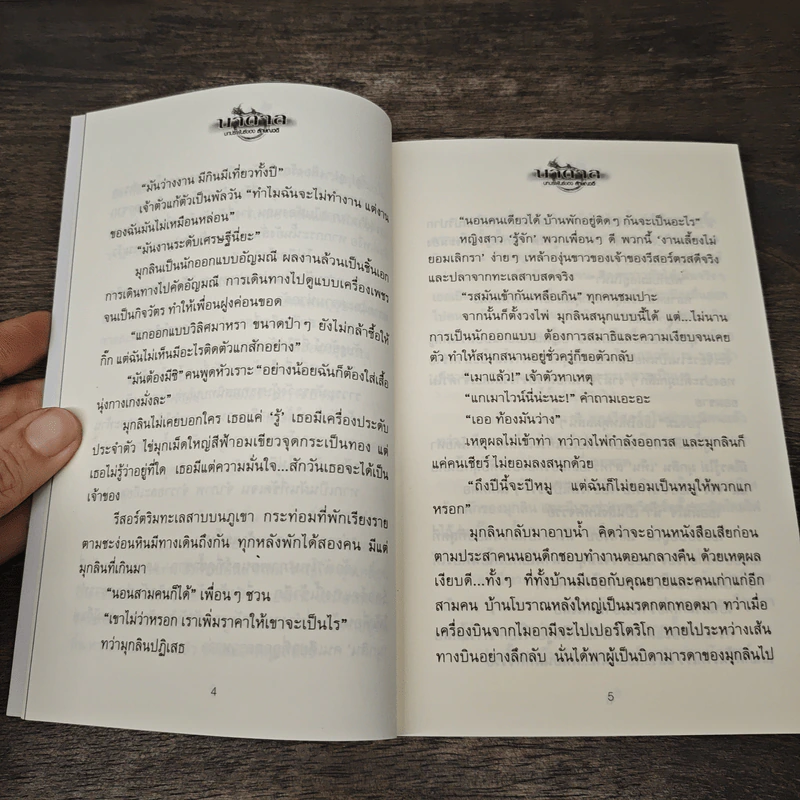 บาดาล
บทประพันธ์ของ ลักษณวดี
“มันว่างงาน มีกินมีเที่ยวทั้งปี”
เจ้าตัวแก้ตัวเป็นพัลวัน “ทำไมฉันจะไม่ทำงาน แต่งาน
ของฉันมันไม่เหมือนหล่อน”
“มันงานระดับเศรษฐีนี่ยะ”
มุกลินเป็นนักออกแบบอัญมณี ผลงานล้วนเป็นชิ้นเอก
การเดินทางไปคัดอัญมณี การเดินทางไปดูแบบเครื่องเพชร
จนเป็นกิจวัตร ทำให้เพื่อนฝูงค่อนขอด
“แกออกแบบวิลิศมาหรา ขนาดป๋าๆ ยังไม่กล้าซื้อให้
กิ๊ก แต่ฉันไม่เห็นมีอะไรติดตัวแกสักอย่าง”
“มันต้องมีซิ” คนพูดหัวเราะ “อย่างน้อยฉันก็ต้องใส่เสื้อ
นุ่งกางเกงมั่งละ”
มุกลินไม่เคยบอกใคร เธอแค่ ‘รู้’ เธอมีเครื่องประดับ
ประจำตัว ไข่มุกเม็ดใหญ่สีฟ้าอมเขียวจุดกระเป็นทอง แต่
เธอไม่รู้ว่าอยู่ที่ใด เธอมีแต่ความมั่นใจ...สักวันเธอจะได้เป็น
เจ้าของ
รีสอร์ตริมทะเลสาบบนภูเขา กระท่อมที่พักเรียงราย
ตามชะง่อนหินมีทางเดินถึงกัน ทุกหลังพักได้สองคน มีแต่
มุกลินที่เกินมา
“นอนสามคนก็ได้” เพื่อนๆ ชวน
“เขาไม่ว่าหรอก เราเพิ่มราคาให้เขาจะเป็นไร”
ทว่ามุกลินปฏิเสธ
4
บาดาล
บทประพันธ์ของ ลักษณวดี
“นอนคนเดียวได้ บ้านพักอยู่ติดๆ กันจะเป็นอะไร”
หญิงสาว ‘รู้จัก’ พวกเพื่อนๆ ดี พวกนี้ ‘งานเลี้ยงไม่
ยอมเลิกรา’ ง่ายๆ เหล้าองุ่นขาวของเจ้าของรีสอร์ตรสดีจริง
และปลาจากทะเลสาบสดจริง
“รสมันเข้ากันเหลือเกิน” ทุกคนชมเปาะ
จากนั้นก็ตั้งวงไพ่ มุกลินสนุกแบบนี้ได้ แต่...ไม่นาน
การเป็นนักออกแบบ ต้องการสมาธิและความเงียบจนเคย
ตัว ทำให้สนุกสนานอยู่ชั่วครู่ก็ขอตัวกลับ
“เมาแล้ว!” เจ้าตัวหาเหตุ
“แกเมาไวน์นี่น่ะนะ!” คำถามเอะอะ
“เออ ท้องมันว่าง”
เหตุผลไม่เข้าท่า ทว่าวงไพ่กำลังออกรส และมุกลินก็
แค่คนเชียร์ ไม่ยอมลงสนุกด้วย
“ถึงปีนี้จะปีหมู แต่ฉันก็ไม่ยอมเป็นหมูให้พวกแก
หรอก”
มุกลินกลับมาอาบน้ำ คิดว่าจะอ่านหนังสือเสียก่อน
ตามประสาคนนอนดึกชอบทำงานตอนกลางคืน ด้วยเหตุผล
เงียบดี...ทั้งๆ ที่ทั้งบ้านมีเธอกับคุณยายและคนเก่าแก่อีก
สามคน บ้านโบราณหลังใหญ่เป็นมรดกตกทอดมา ทว่าเมื่อ
เครื่องบินจากไมอามีจะไปเปอร์โตริโก หายไประหว่างเส้น
ทางบินอย่างลึกลับ นั่นได้พาผู้เป็นบิดามารดาของมุกลินไป
5